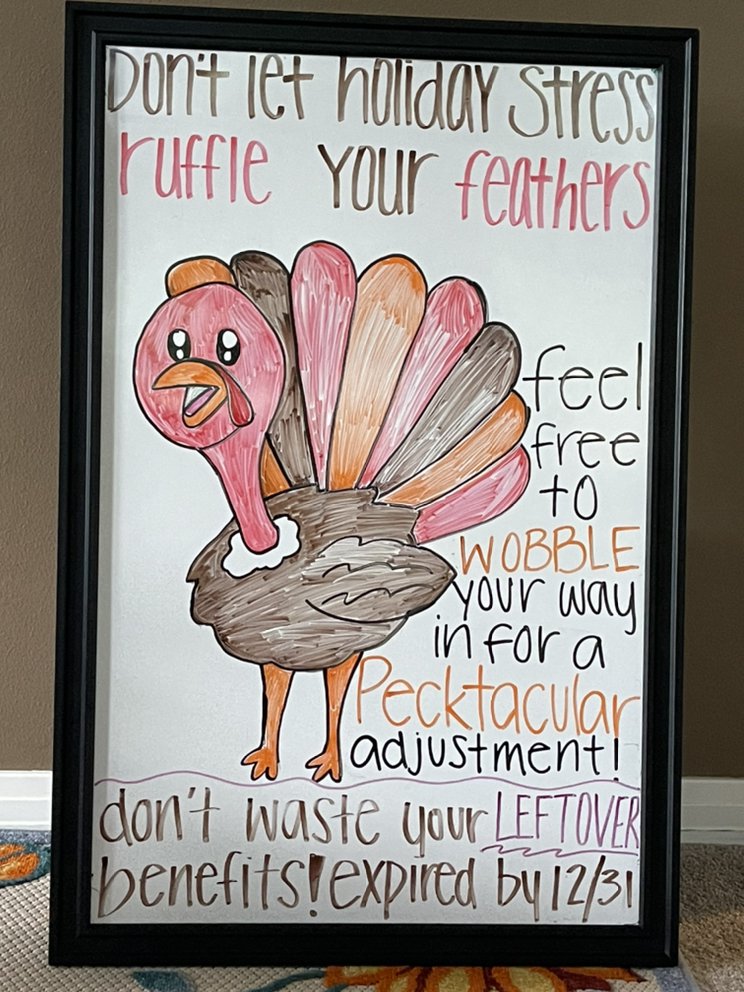 Don't let holiday stress
ruffle your feathers
feel
free
to
WOBBLE
your way
in for a
Pecktacular
adjustment!
don't waste your LEFTOVER
benefits! expired by 12/31